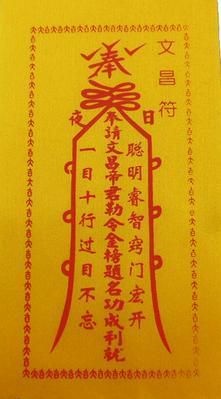 文昌符
奉
日
夜
聪明睿智窍门宏开
奉請文昌帝君勒令金榜題名功成利就
一目十行过目不忘